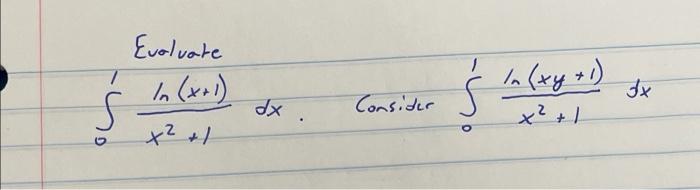 Evaluate
∫₀¹ ln(x+1)/(x²+1) dx. Consider ∫₀¹ ln(xy+1)/(x²+1) dx